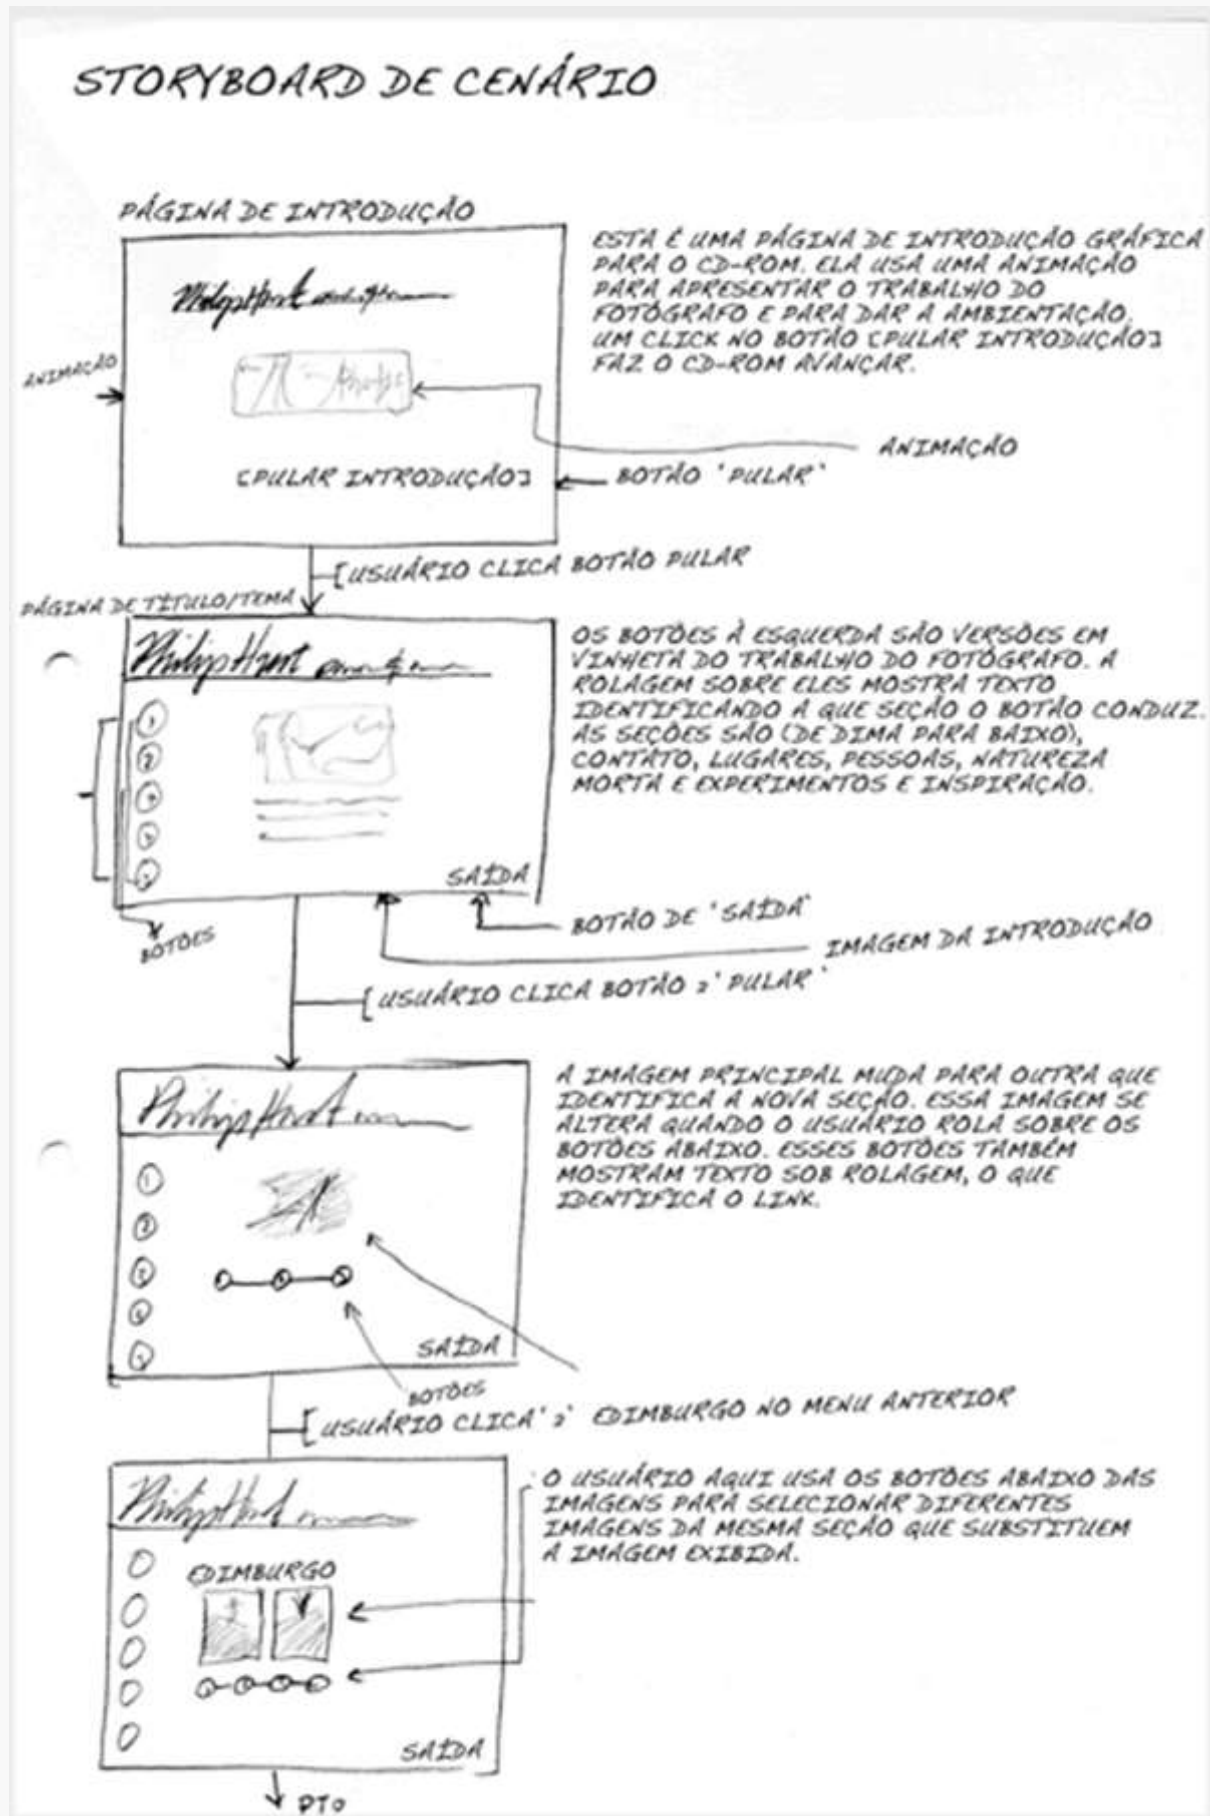 STORYBOARD DE CENÁRIO
PÁGINA DE INTRODUÇÃO
ESTA É UMA PÁGINA DE INTRODUÇÃO GRÁFICA
PARA O CD-ROM. ELA USA UMA ANIMAÇÃO
PARA APRESENTAR O TRABALHO DO
FOTÓGRAFO E PARA DAR A AMBIENTAÇÃO.
UM CLICK NO BOTÃO [PULAR INTRODUÇÃO]
FAZ O CD-ROM AVANÇAR.
Philip Hunt
ANIMAÇÃO
ANIMAÇÃO
[PULAR INTRODUÇÃO]
BOTÃO 'PULAR'
[USUÁRIO CLICA BOTÃO PULAR
PÁGINA DE TÍTULO/TEMA
Philip Hunt
OS BOTÕES À ESQUERDA SÃO VERSÕES EM
VINHETA DO TRABALHO DO FOTÓGRAFO. A
ROLAGEM SOBRE ELES MOSTRA TEXTO
IDENTIFICANDO A QUE SEÇÃO O BOTÃO CONDUZ.
AS SEÇÕES SÃO (DE DIMA PARA BAIXO),
CONTATO, LUGARES, PESSOAS, NATUREZA
MORTA E EXPERIMENTOS E INSPIRAÇÃO.
SAÍDA
BOTÕES
BOTÃO DE 'SAÍDA'
IMAGEM DA INTRODUÇÃO
[USUÁRIO CLICA BOTÃO 2' PULAR'
Philip Hunt
A IMAGEM PRINCIPAL MUDA PARA OUTRA QUE
IDENTIFICA A NOVA SEÇÃO. ESSA IMAGEM SE
ALTERA QUANDO O USUÁRIO ROLA SOBRE OS
BOTÕES ABAIXO. ESSES BOTÕES TAMBÉM
MOSTRAM TEXTO SOB ROLAGEM, O QUE
IDENTIFICA O LINK.
SAÍDA
BOTÕES
[USUÁRIO CLICA '2' EDIMBURGO NO MENU ANTERIOR
Philip Hunt
O USUÁRIO AQUI USA OS BOTÕES ABAIXO DAS
IMAGENS PARA SELECIONAR DIFERENTES
IMAGENS DA MESMA SEÇÃO QUE SUBSTITUEM
A IMAGEM EXIBIDA.
EDIMBURGO
SAÍDA
PTO